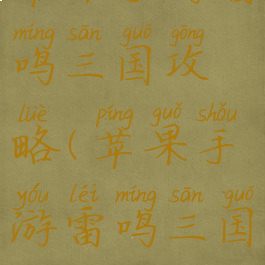 míng sān guó gōng
鸣三国攻
lüè píng guǒ shǒu
略(苹果手
yóu léi míng sān guó
游雷鸣三国